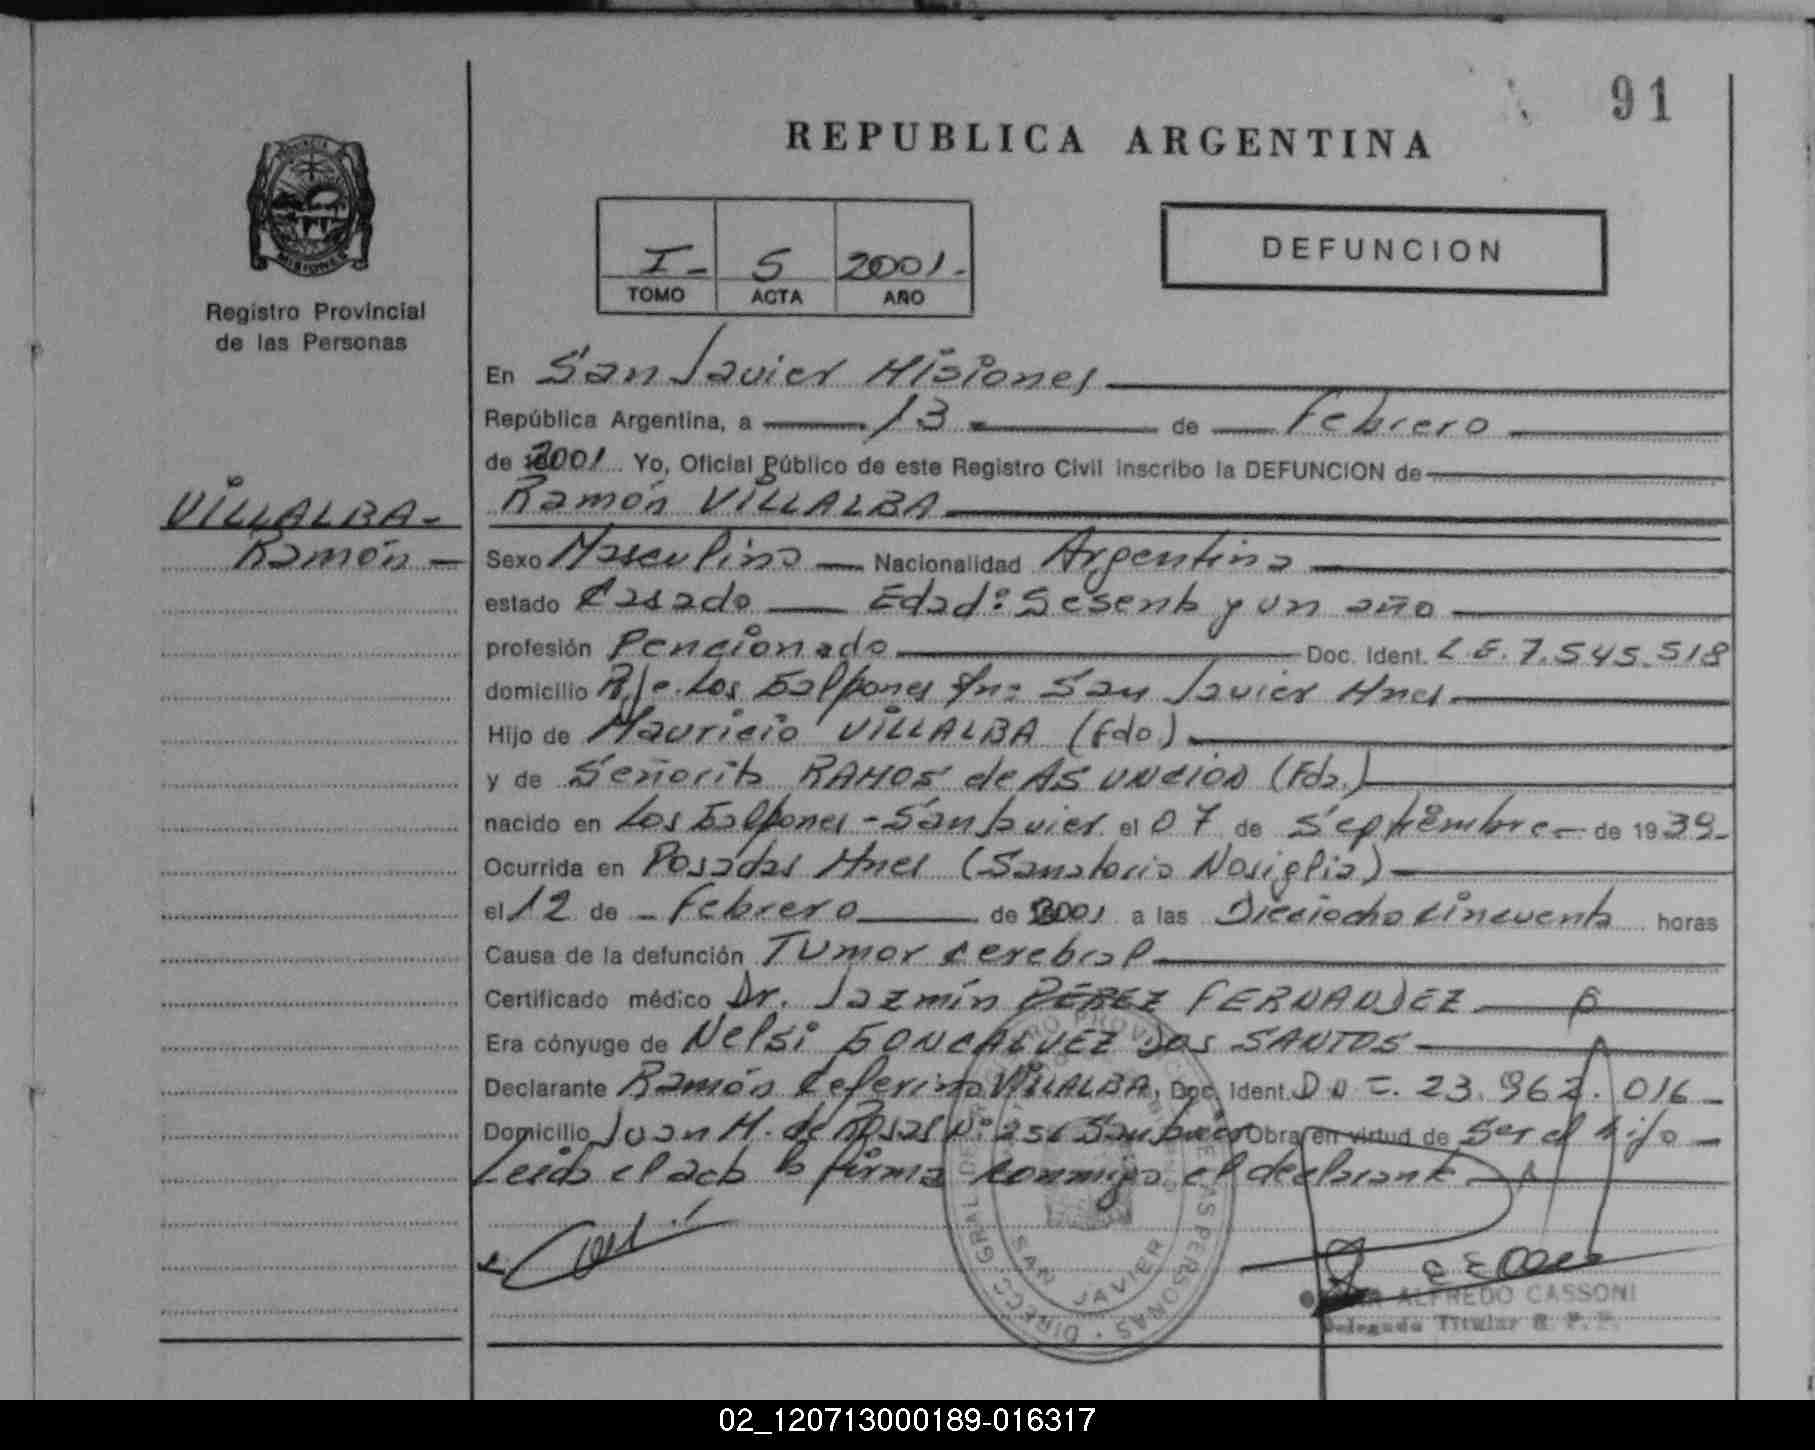 91
REPUBLICA ARGENTINA
PROVINCIA
MISIONES
I- 5 2001.-
TOMO ACTA AÑO
DEFUNCION
Registro Provincial
de las Personas
En San Javier Misiones
República Argentina, a 13 de Febrero
de 2001 Yo, Oficial Público de este Registro Civil inscribo la DEFUNCION de
VILLALBA-
Ramón VILLALBA
Ramón -
Sexo Masculino Nacionalidad Argentina
estado Casado Edad: Sesenta y un año
profesión Pencionado Doc. Ident. L.E. 7.545.518
domicilio Pje. Los Galpones San Javier Mnes
Hijo de Mauricio VILLALBA (Fdo.)
y de Señorita RAMOS de ASUNCION (Fda.)
nacido en Los Galpones - San Javier el 07 de Septiembre - de 1939-
Ocurrida en Posadas Mnes (Sanatorio Nosiglia)
el 12 de Febrero de 2001 a las Dieciocho cincuenta horas
Causa de la defunción Tumor cerebral
Certificado médico Dr. Jazmín PÉREZ FERNANDEZ
Era cónyuge de Nelsi GONCALVEZ DOS SANTOS
Declarante Ramón Ceferino VILLALBA, Doc. Ident. 23.962.016
Domicilio Juan M. de Rosas Nº San Javier Obra en virtud de Ser el hijo
Leida el acta la firma conmigo el declarante
SAN JAVIER
ALFREDO CASSONI
Delegado Titular R. P. P.
02_120713000189-016317